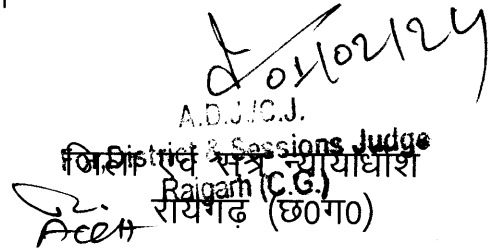 01/02/24
A.D.J./C.J.
District & Sessions Judge
जिला एवं सत्र न्यायाधीश
Raigarh (C.G.)
रायगढ़ (छ0ग0)